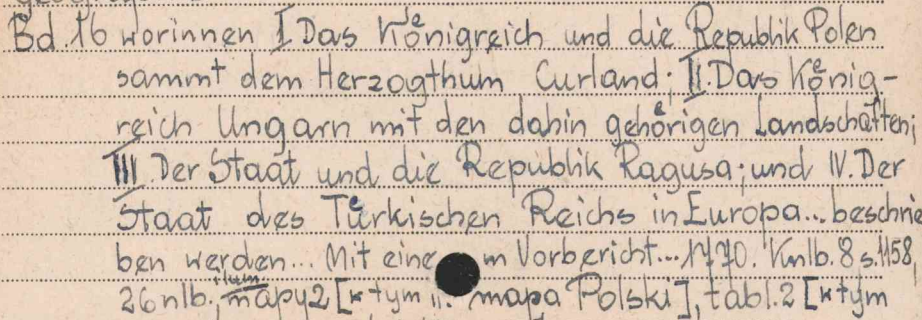 Bd.16 worinnen I Das Koͤnigreich und die Republik Polen
sammt dem Herzogthum Curland; II. Das Koͤnig-
reich Ungarn mit den dahin gehoͤrigen Landschaften;
III Der Staat und die Republik Ragusa; und IV. Der
Staat des Tuͤrkischen Reichs in Europa... beschrie
ben werden... Mit eine m Vorbericht... 1770. K nlb. 8 s. 1158,
26 nlb., ilum. mapy 2 [w tym mapa Polski], tabl. 2 [w tym